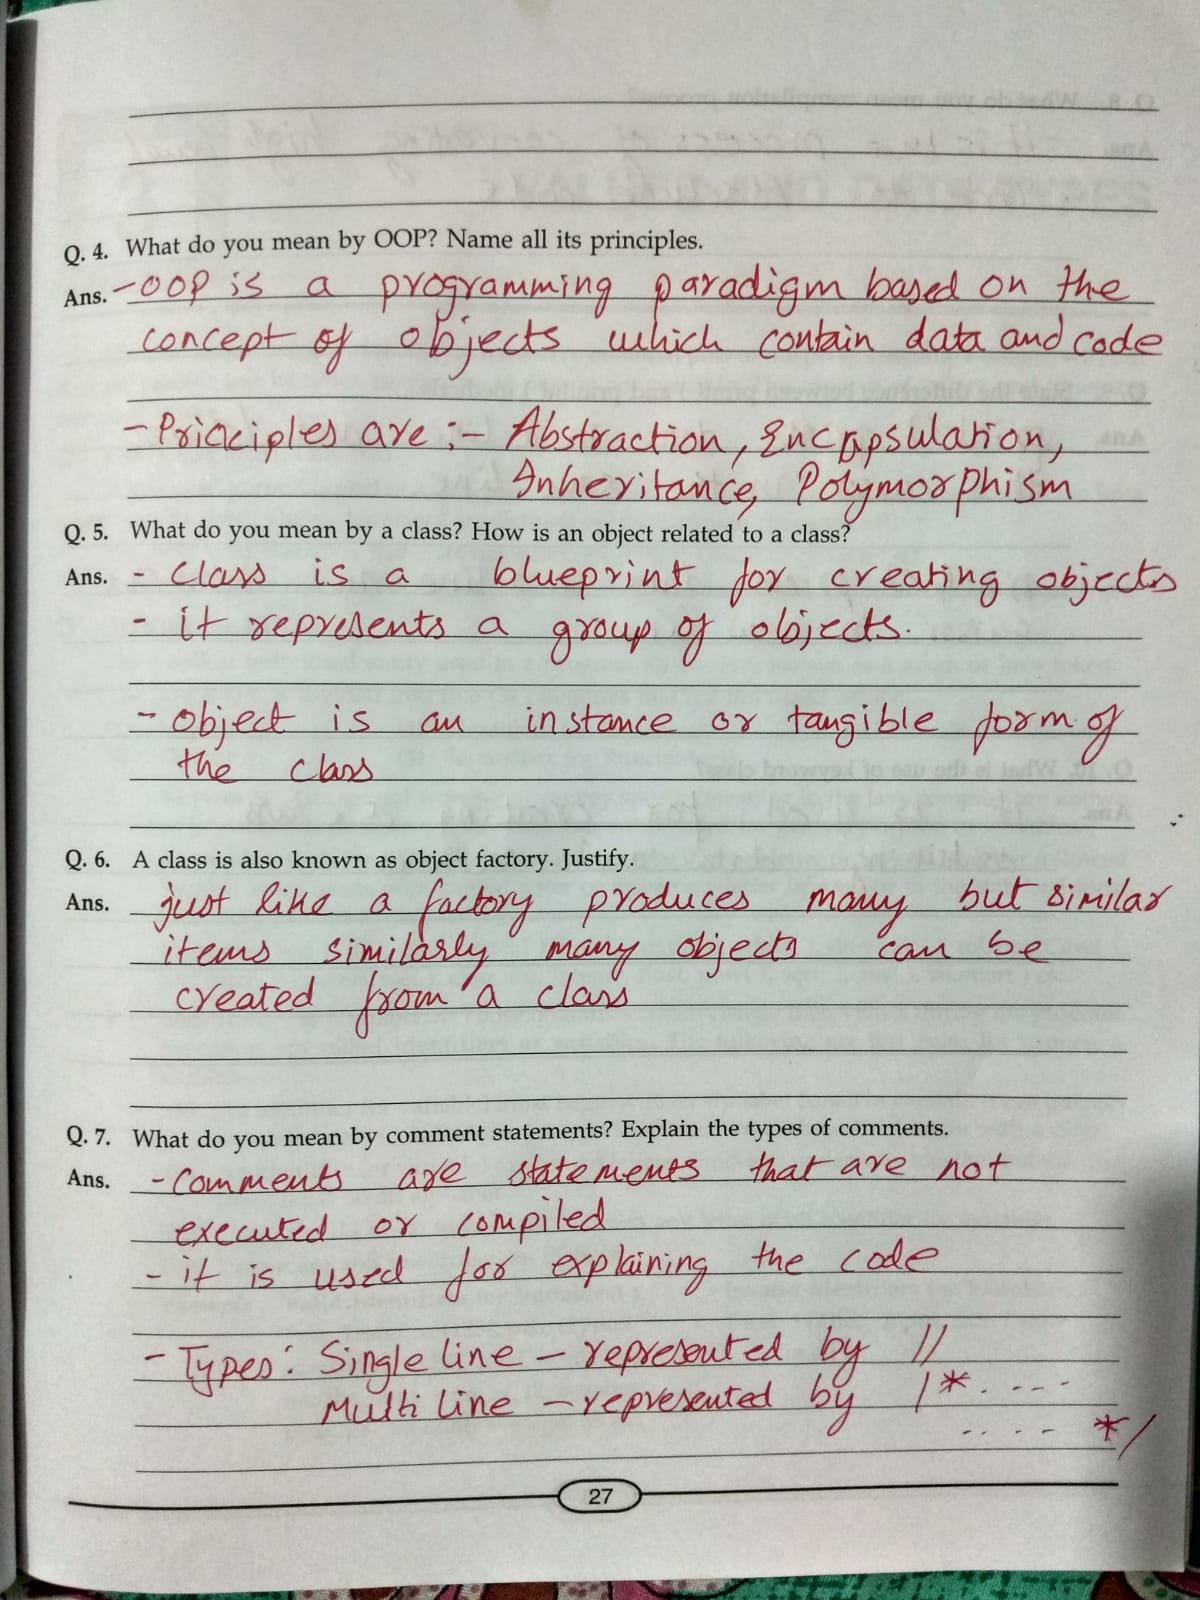 Q. 4. What do you mean by OOP? Name all its principles.
Ans. - OOP is a programming paradigm based on the
concept of objects which contain data and code
- Priciciples are :- Abstraction, Encapsulation,
Inheritance, Polymorphism
Q. 5. What do you mean by a class? How is an object related to a class?
Ans. - Class is a blueprint for creating objects
- it represents a group of objects.
- object is an instance or tangible form of
the class
Q. 6. A class is also known as object factory. Justify.
Ans. just like a factory produces many but similar
items similarly many objects can be
created from a class
Q. 7. What do you mean by comment statements? Explain the types of comments.
Ans. - Comments are statements that are not
executed or compiled
- it is used for explaining the code
- Types: Single line - represented by //
Multi line - represented by /*. ---
..... */
27